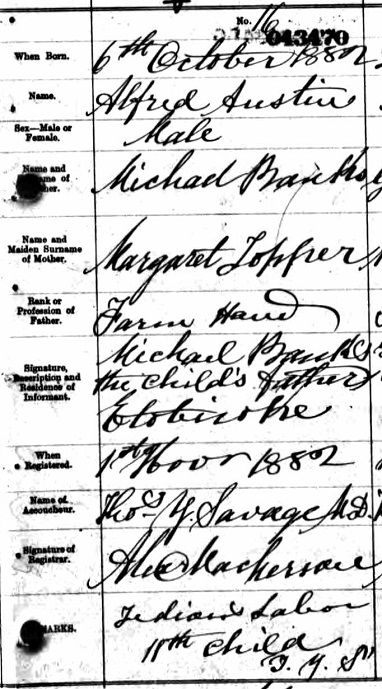 No. 16
043470
When Born.
6th October 1882
Name.
Alfred Austin
Sex—Male or
Female.
Male
Name and
of
Michael Banks
Name and
Maiden Surname
of Mother.
Margaret Topfrer
Rank or
Profession of
Father.
Farm Hand
Signature,
Description and
Residence of
Informant.
Michael Banks
the child's father
Etobicoke
When
Registered.
1st Novr 1882
Name of
Accoucheur.
Thos Y. Savage M.D.
Signature of
Registrar.
Alex Mackerson
REMARKS.
Tedious Labor
11th child
T. Y. S.